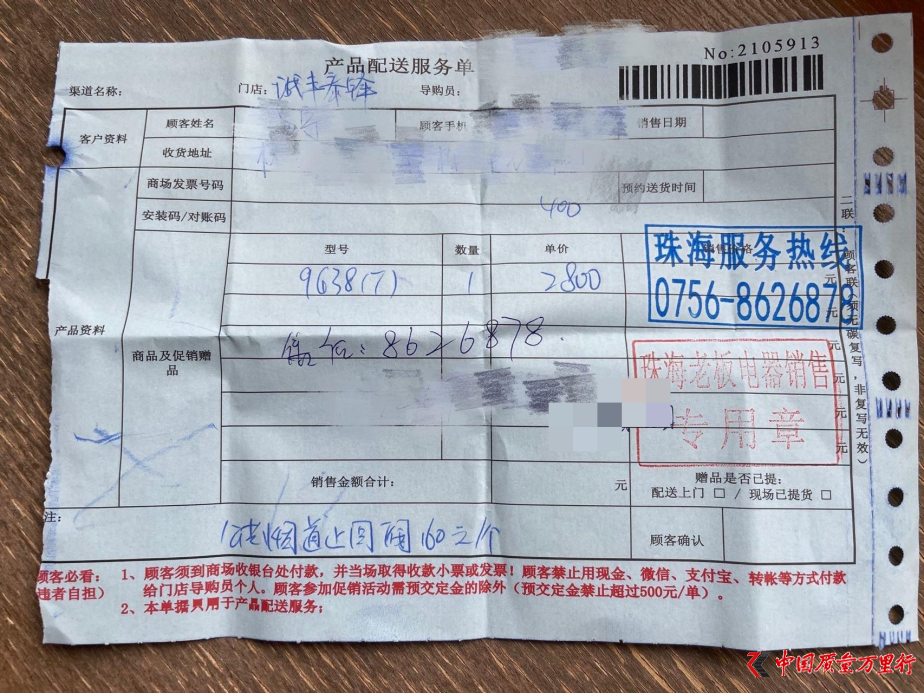 No:2105913
产品配送服务单
渠道名称: 门店: 诚丰 导购员:
客户资料 顾客姓名 顾客手机 销售日期
收货地址
商场发票号码 预约送货时间
400
安装码/对账码
型号 数量 单价
9638(7) 1 2800 元
元
珠海服务热线
0756-8626878
产品资料
商品及促销赠品
售后: 8626878 元
元
元
元
珠海老板电器销售
专用章
销售金额合计: 元
赠品是否已提:
配送上门 □ / 现场已提货 □
注:
烟道止回阀160元/个
顾客确认
二联:顾客联(须无碳复写,非复写无效)
顾客必看: 1、顾客须到商场收银台处付款,并当场取得收款小票或发票!顾客禁止用现金、微信、支付宝、转帐等方式付款
违者自担) 给门店导购员个人。顾客参加促销活动需预交定金的除外(预交定金禁止超过500元/单)。
2、本单据只用于产品配送服务;
中国质量万里行